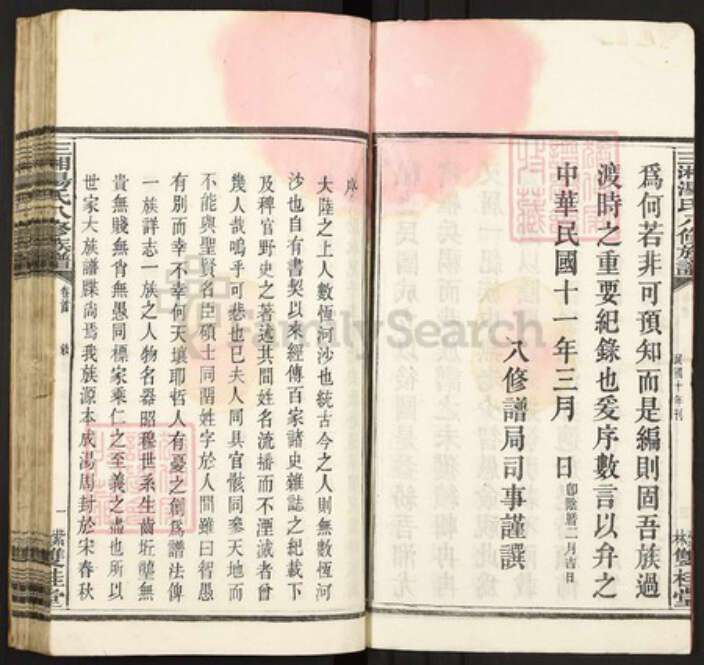 三湘湯氏八修族譜
民國十年刊
雙桂堂
為何若非可預知而是編則固吾族過
渡時之重要紀錄也爰序數言以弁之
中華民國十一年三月 日 卽陰曆二月吉日
八修譜局司事謹譔
序
大陸之上人數恆河沙也統古今之人則無數恆河
沙也自有書契以來經傳百家諸史雜誌之紀載下
及稗官野史之著述其間姓名流播而不湮滅者曾
幾人哉嗚乎可悲也已夫人同具官骸同乘天地而
不能與聖賢名臣碩士同留姓字於人間雖曰智愚
有別而幸不幸何天壤耶哲人有憂之創為譜法俾
一族詳志一族之人物名器昭穆世系生齒坵壟無
貴無賤無肖無愚同標家乘仁之至義之盡也所以
世家大族譜牒尚焉我族源本成湯周封於宋春秋
三湘湯氏八修族譜
卷首 敘
一
雙桂堂
FamilySearch